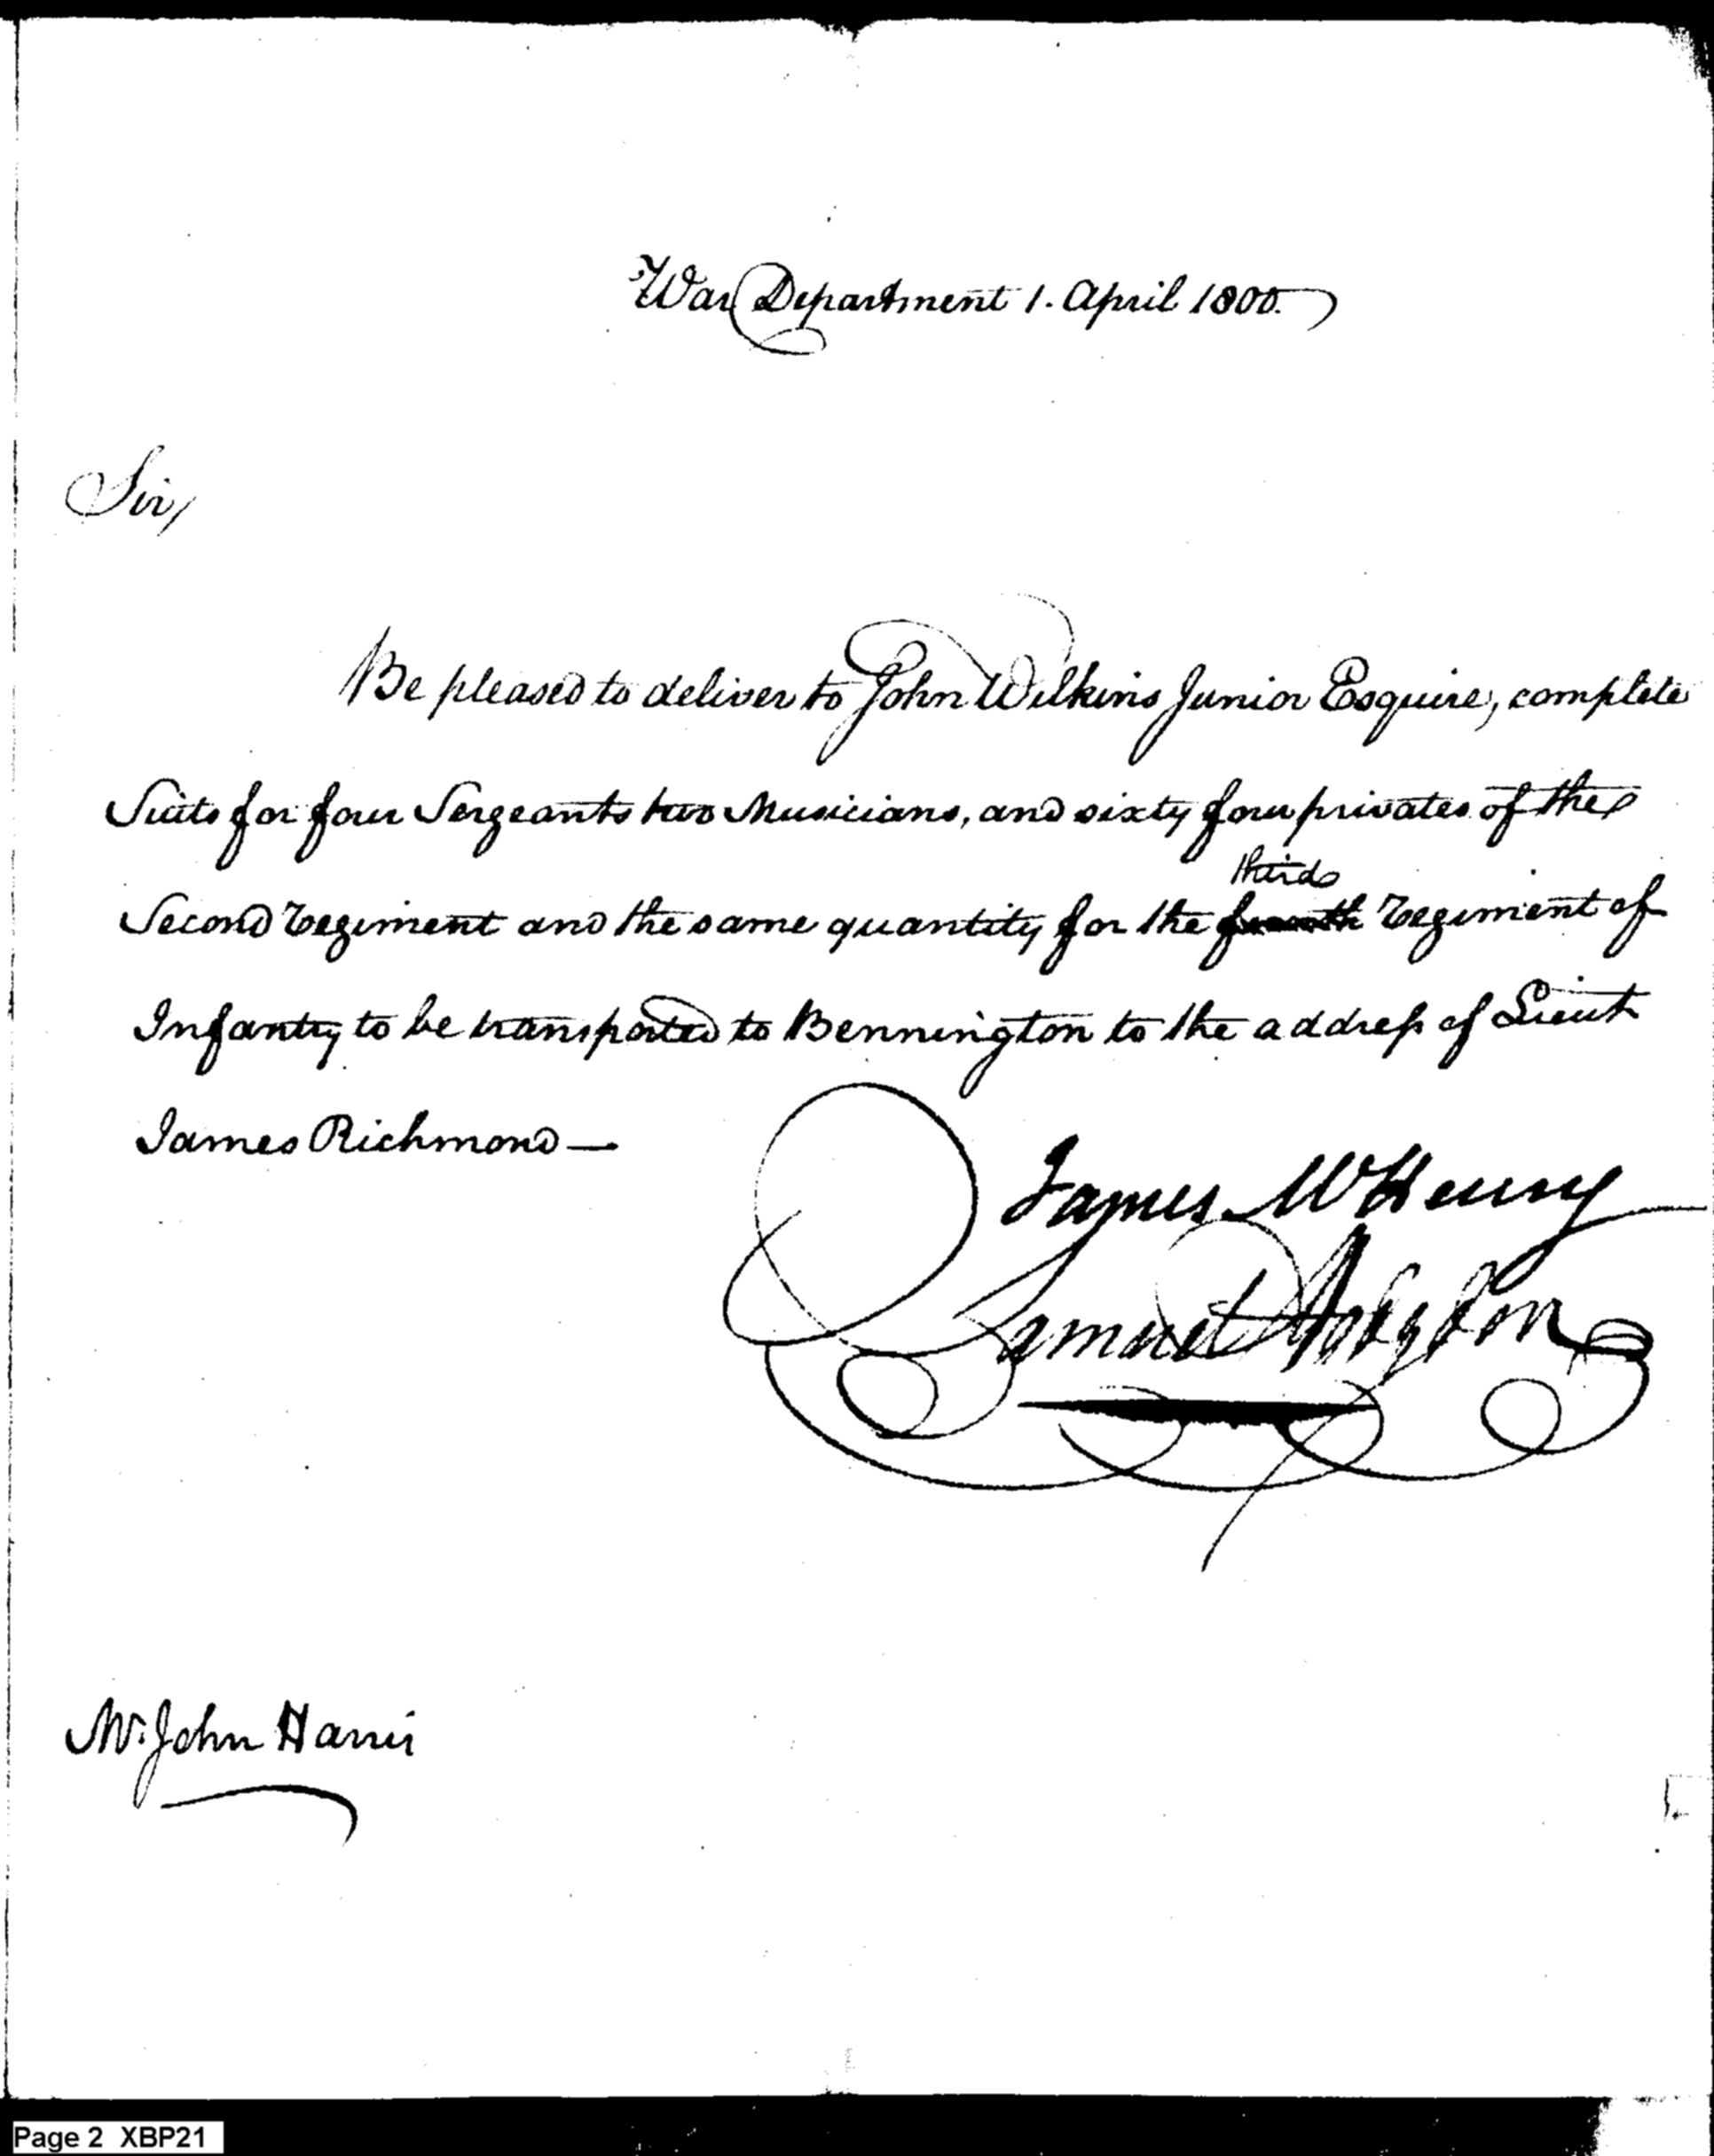 War Department 1. April 1800.
Sir,
Be pleased to deliver to John Wilkins Junior Esquire, complete
Suits for four Sergeants two Musicians, and sixty four privates of the
third
Second Regiment and the same quantity for the fourth Regiment of
Infantry to be transported to Bennington to the address of Lieut
James Richmond —
James McHenry
Samuel Hodgdon
Mr. John Harris
Page 2 XBP21